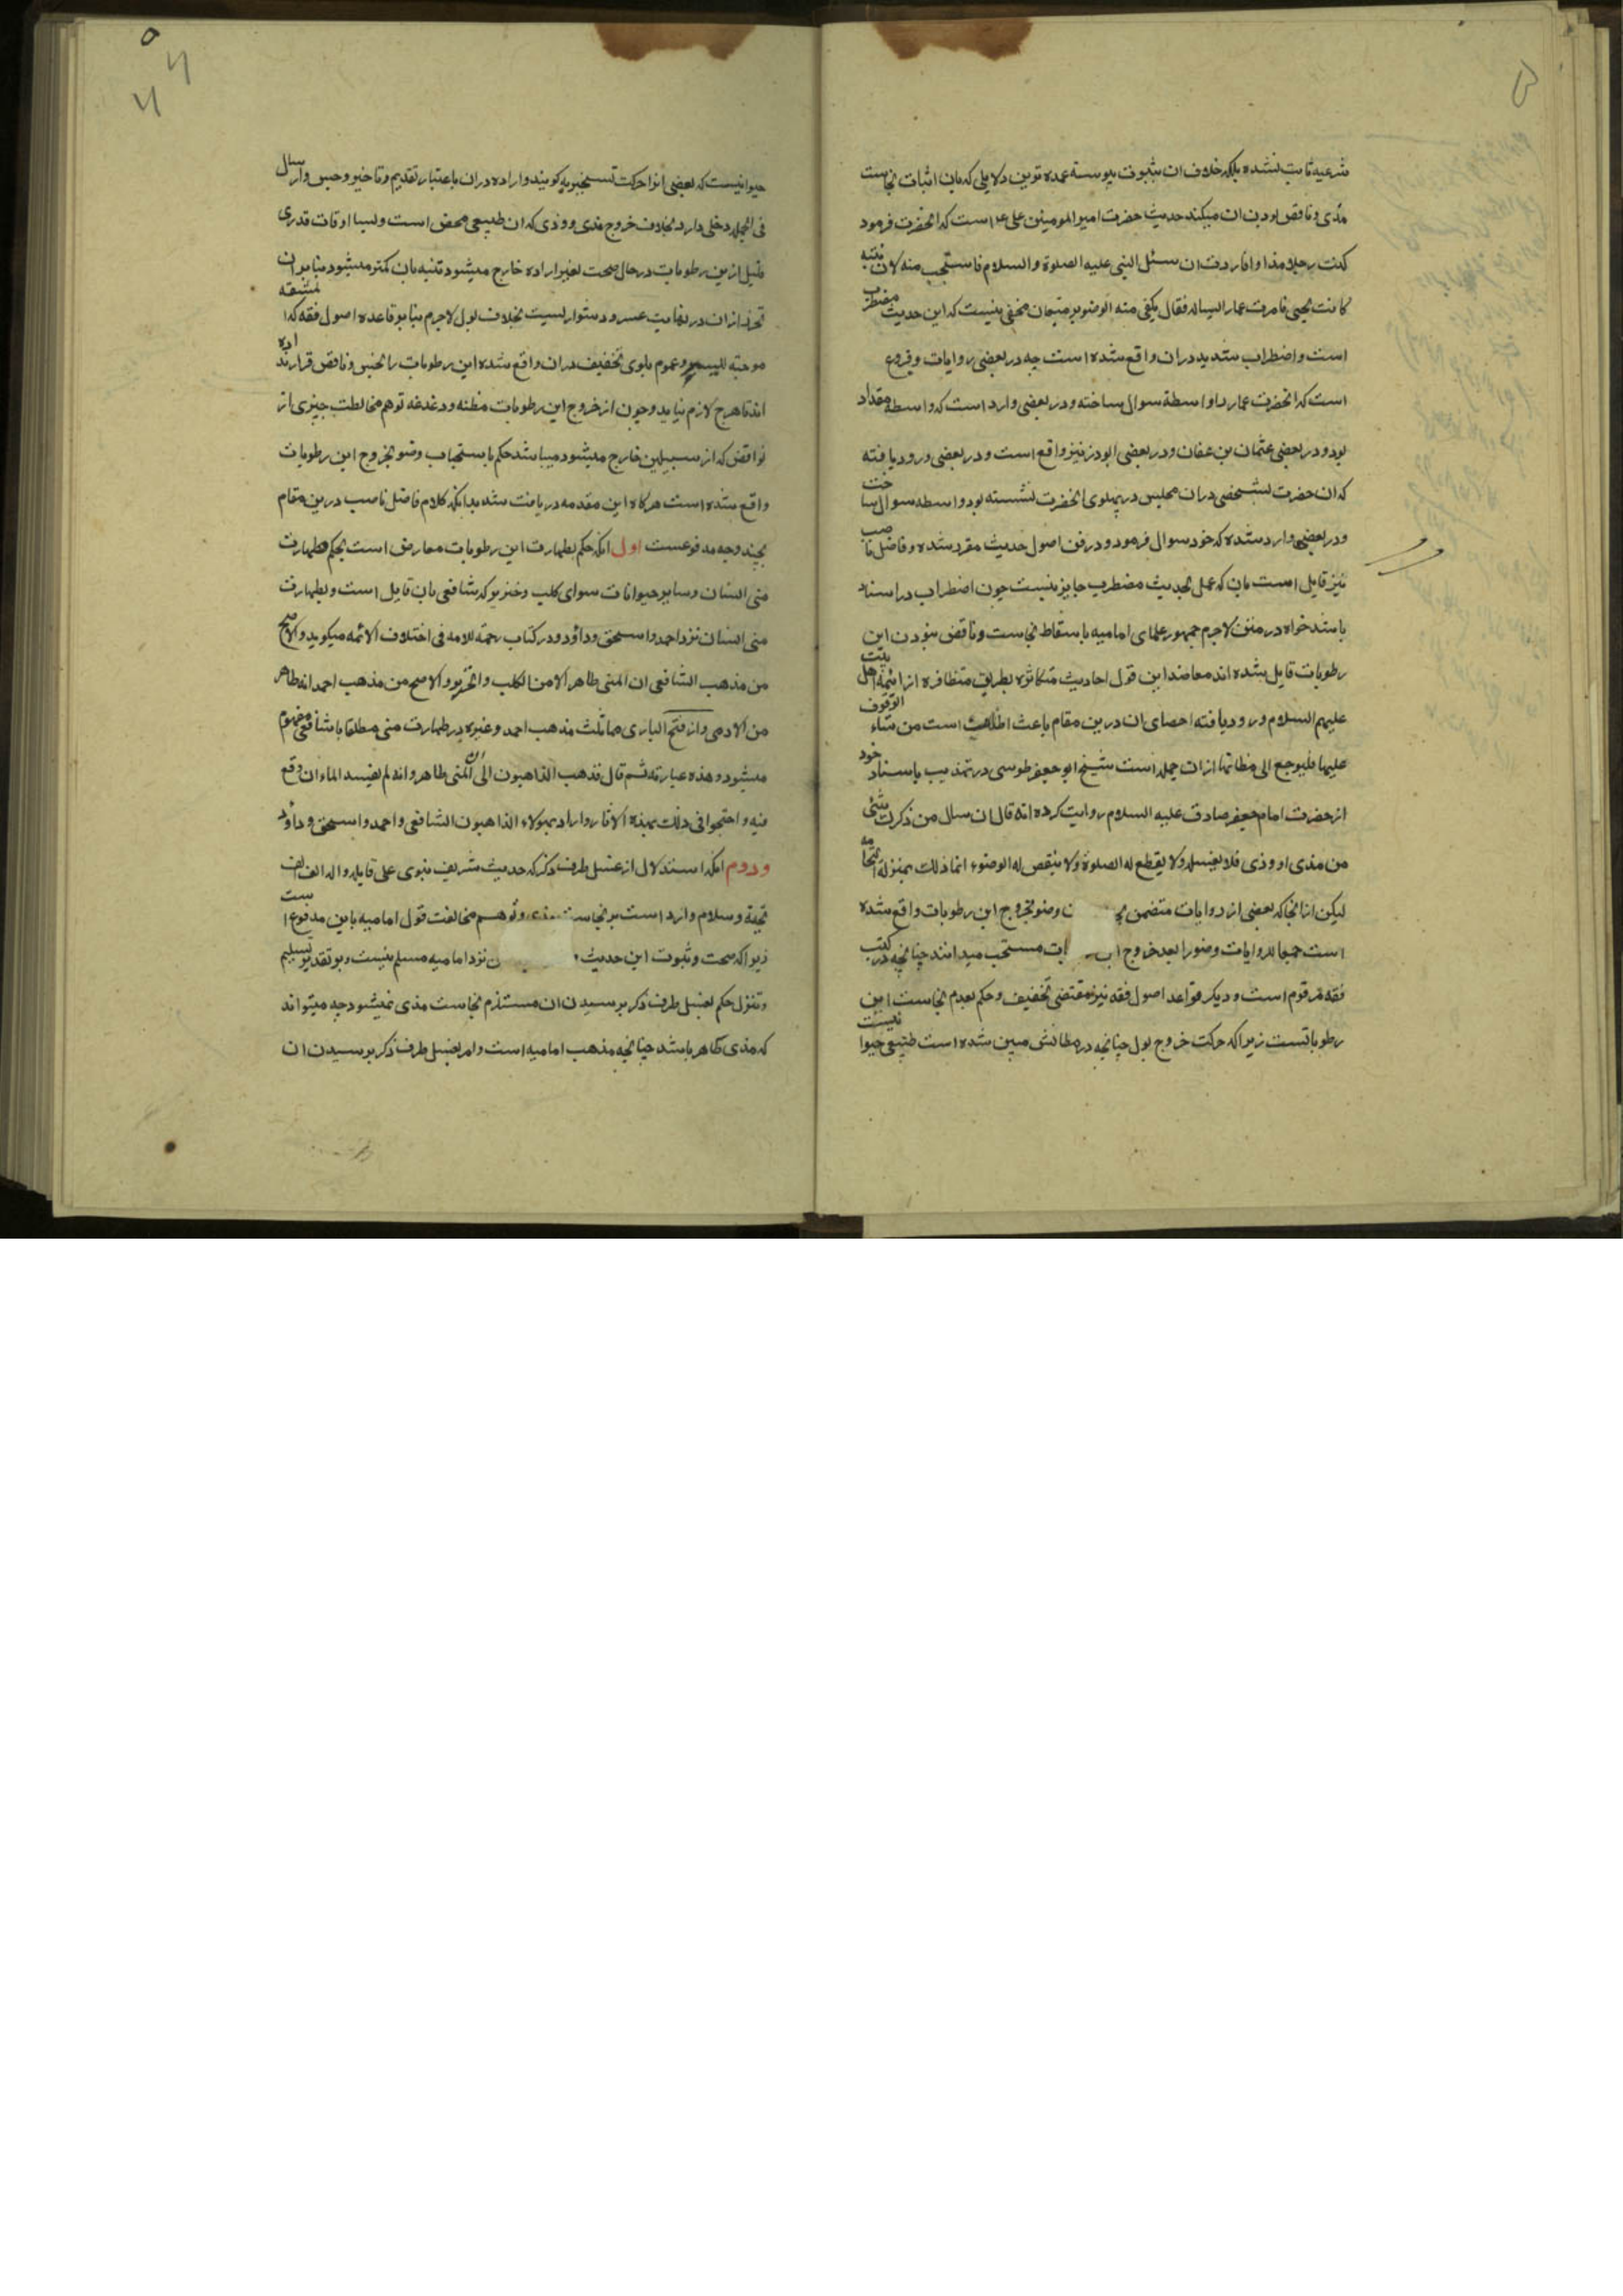 شرعیه ثابت نشده بلکه خلاف ان بثبوت پیوسته عمده توین دلایلی که بان اثبات نجاست
مذی و ناقص بودن ان میکند حدیث حضرت امیر المومنین علی ع است که انحضرت فرمود
کنت رجلا مذاء و اردت ان سئل النبی علیه الصلوة و السلام فاستحیت منه لان بنته
کانت تحتی فامرت عمار فساله فقال یکفی منه الوضوء بر متتبعان مخفی نیست که این حدیث مضطرب
است و اضطراب شدید دران واقع شده است چه در بعضی روایات وقوع
است که انحضرت عمار را واسطة سوال ساخته و در بعضی وارد است که واسطه مقداد
بود و در بعضی عثمان بن عفان و در بعضی ابوذر نیز واقع است و در بعضی ورود یافته
که ان حضرت بشخصی دران مجلس در پهلوی انحضرت نشسته بود واسطه سوال ساخت
و در بعضی وارد شده که خود سوال فرمود و در فن اصول حدیث مقرر شده و فاضل ناصب
نیز قایل است بان که عمل بحدیث مضطرب جایز نیست چون اضطراب در اسناد
باشد خواه در متن لاجرم جمهور علمای امامیه باسقاط نجاست و ناقض نبودن این
رطوبات قایل شده اند معاضد این قول احادیث متکاثره بطریق متظافره از ائمه اهل بیت
علیهم السلام ورود یافته احصای ان درین مقام باعث اطناب است من شاء الوقوف
علیها فلیرجع الی مظانها ازان جمله است شیخ ابو جعفر طوسی در تهذیب باسناد خود
از حضرت امام جعفر صادق علیه السلام روایت کرده انه قال ان سال من ذکرک شئی
من مذی او وذی فلا یغسله ولا یقطع له الصلوة ولا ینقض له الوضوء انما ذلک بمنزلة النخامه
لیکن ازانجا که بعضی از روایات متضمن وضو بخروج این رطوبات واقع شده
است جمعا للروایات وضو را بعد خروج مستحب میدانند چنانچه در کتب
فقه مرقوم است و دیکر قواعد اصول فقه نیز مقتضی تخفیف و حکم بعدم نجاست این
رطوباتست زیرا که حرکت خروج بول چنانچه در مظانش مبین شده است طبیعی حیوا نیست
حیوانیست که بعضی انرا حرکت تسخیریه کویند و اراده دران باعتبار تقدیم و تاخیر و حبس و ارسال
فی الجمله دخلی دارد بخلاف خروج مذی و وذی که ان طبیعی محض است و بسا اوقات قدری
قلیل ازین رطوبات در حال صحت بغیر اراده خارج میشود تنبه بان کمتر میشود بنابران
تحرز ازان در نهایت عسر و دشوار لیست بخلاف بول لاجرم بنابر قاعده اصول فقه که المشقه
موجبة للیسر و عموم بلوی تخفیف دران واقع شده این رطوبات را نجس و ناقض قرار نداده
اند تا هرج لازم نیاید و چون از خروج این رطوبات مظنه و دغدغه توهم مخالطت چیزی از
نواقض که از سبیلین خارج میشود میباشد حکم باستحباب وضو بخروج این رطوبات
واقع شده است هرکاه این مقدمه دریافت شد بدانکه کلام فاضل ناصب درین مقام
بچند وجه مدفوعست اول انکه حکم بطهارت این رطوبات معارض است بحکم بطهارت
منی انسان و سایر حیوانات سوای کلب و خنزیر که شافعی بان قایل است و بطهارت
منی انسان نزد احمد و اسحق و داؤد و در کتاب رحمة للامه فی اختلاف الائمه میکوید و الاصح
من مذهب الشافعی ان المنی طاهر الا من الکلب و الخنزیر و الاصح من مذهب احمد انه طاهر
من الادمی و از فتح الباری مماثلت مذهب احمد و غیره در طهارت منی مطلقا با شافعی مفهوم
میشود و هذه عبارته ثم قال فذهب الذاهبون الی ان المنی طاهر و انه لم یفسد الماء ان وقع
فیه و احتجوا فی ذلک بهذه الاثار و اراد بهولاء الذاهبون الشافعی و احمد و اسحق و داؤد
و دوم انکه استدلال از غسل طرف ذکر که حدیث شریف نبوی علی قایله و اله الف الف
تحیة و سلام وارد است بر نجاست مذی و توهم مخالفت قول امامیه باین مدفوع است
زیرا که صحت و ثبوت این حدیث نزد امامیه مسلم نیست و بر تقدیر تسلیم
و تنزل حکم بغسل طرف ذکر بر سیدن ان مستلزم نجاست مذی نمیشود چه میتواند
که مذی طاهر باشد چنانچه مذهب امامیه است و امر بغسل طرف ذکر بر سیدن ان